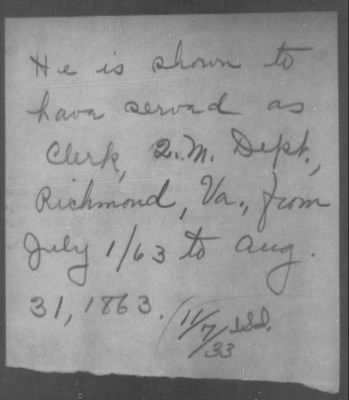 He is shown to
have served as
Clerk, Q.M. Dept.,
Richmond, Va., from
July 1/63 to Aug.
31, 1863.
11/7/33